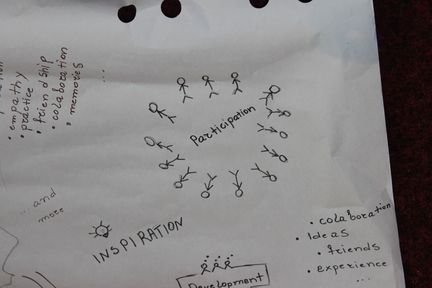 • empathy
• practice
• friendship
• colaboration
• memories
...
Participation
... and
more
INSPIRATION
Development
• colaboration
• Ideas
• friends
• experience
...